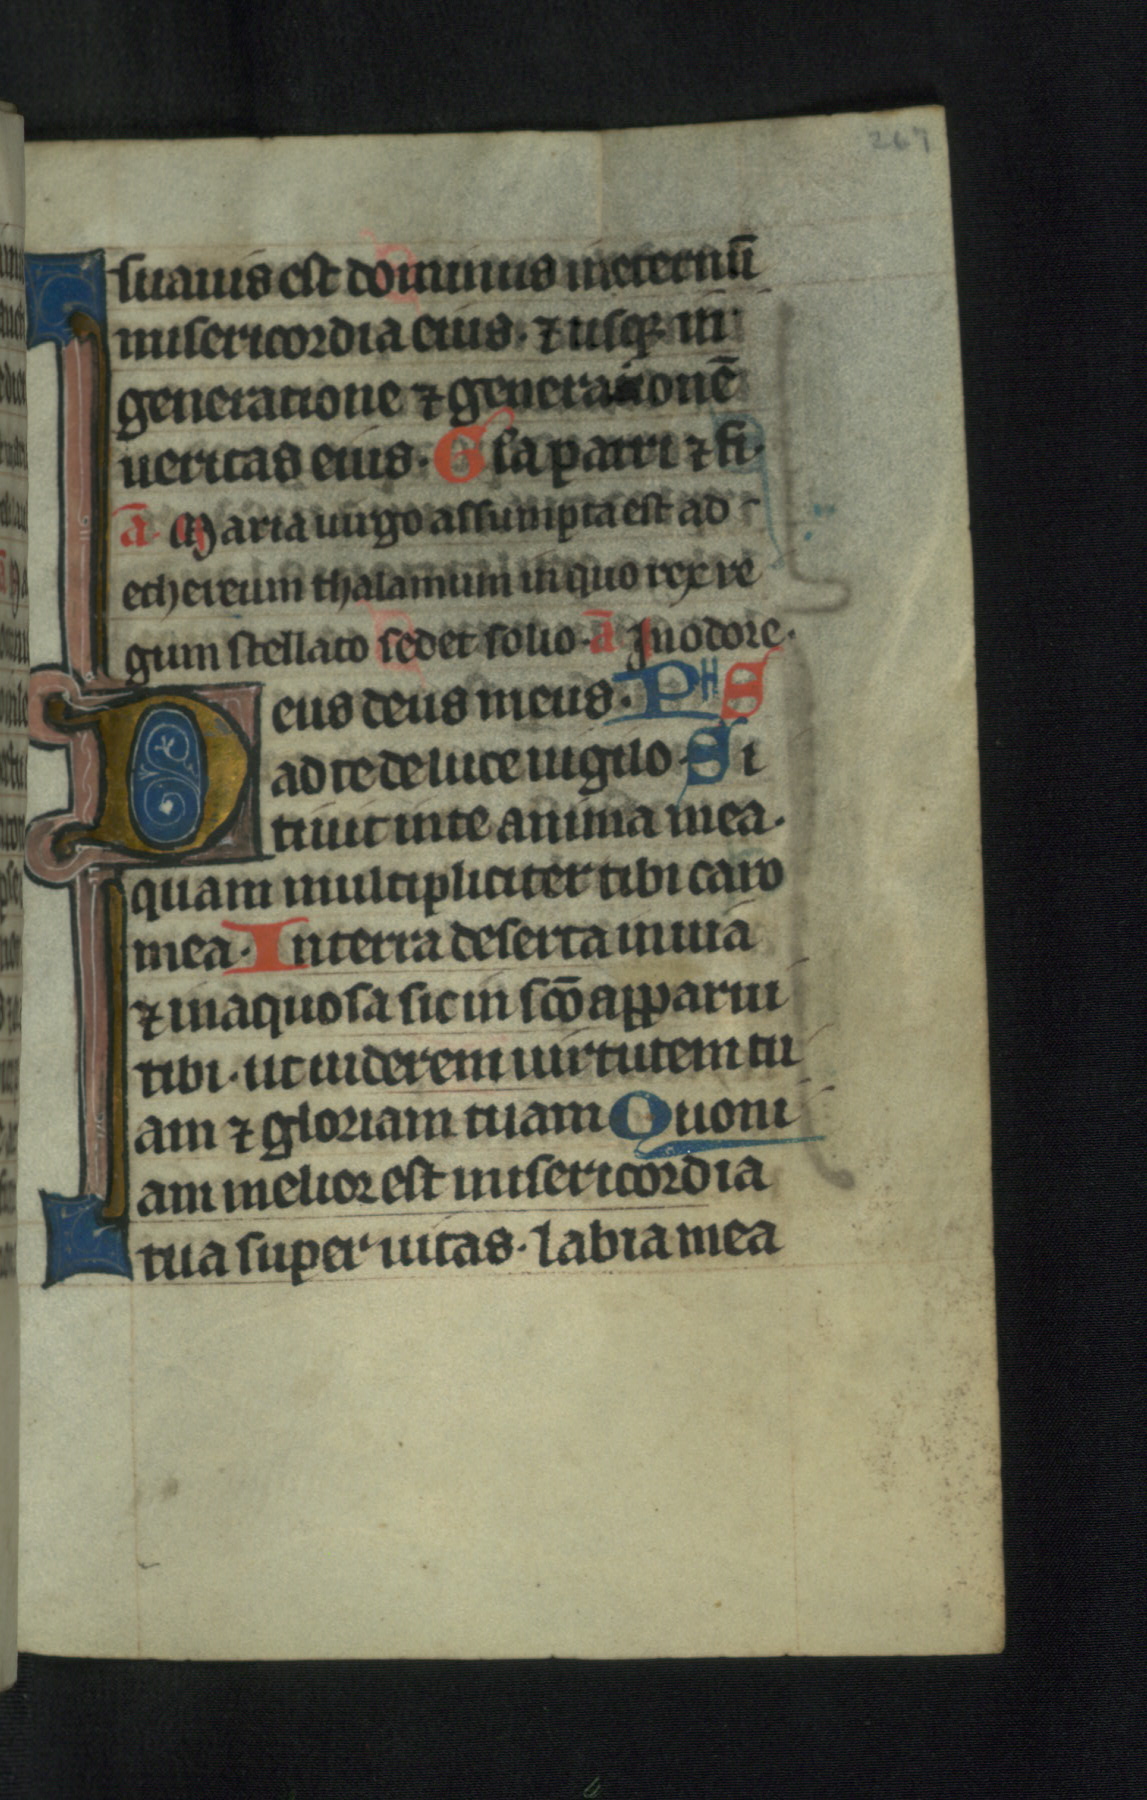 267
suauis est dominus ineternū
misericordia eius· ⁊ usq; in
generatione ⁊ generationē
ueritas eius· Gła patri ⁊ fi·
ā· Maria uirgo assumpta est ad
ethereum thalamum in quo rex re
gum stellato sedet solio· ā Jn odore·
Deus deus meus· PHS
ad te de luce uigilo Si
tiuit inte anima mea·
quam multipliciter tibi caro
mea· Interra deserta inuia
⁊ inaquosa sic in sc̄o apparui
tibi· ut uiderem uirtutem tu
am ⁊ gloriam tuam Quoni
am melior est misericordia
tua super uitas· labia mea